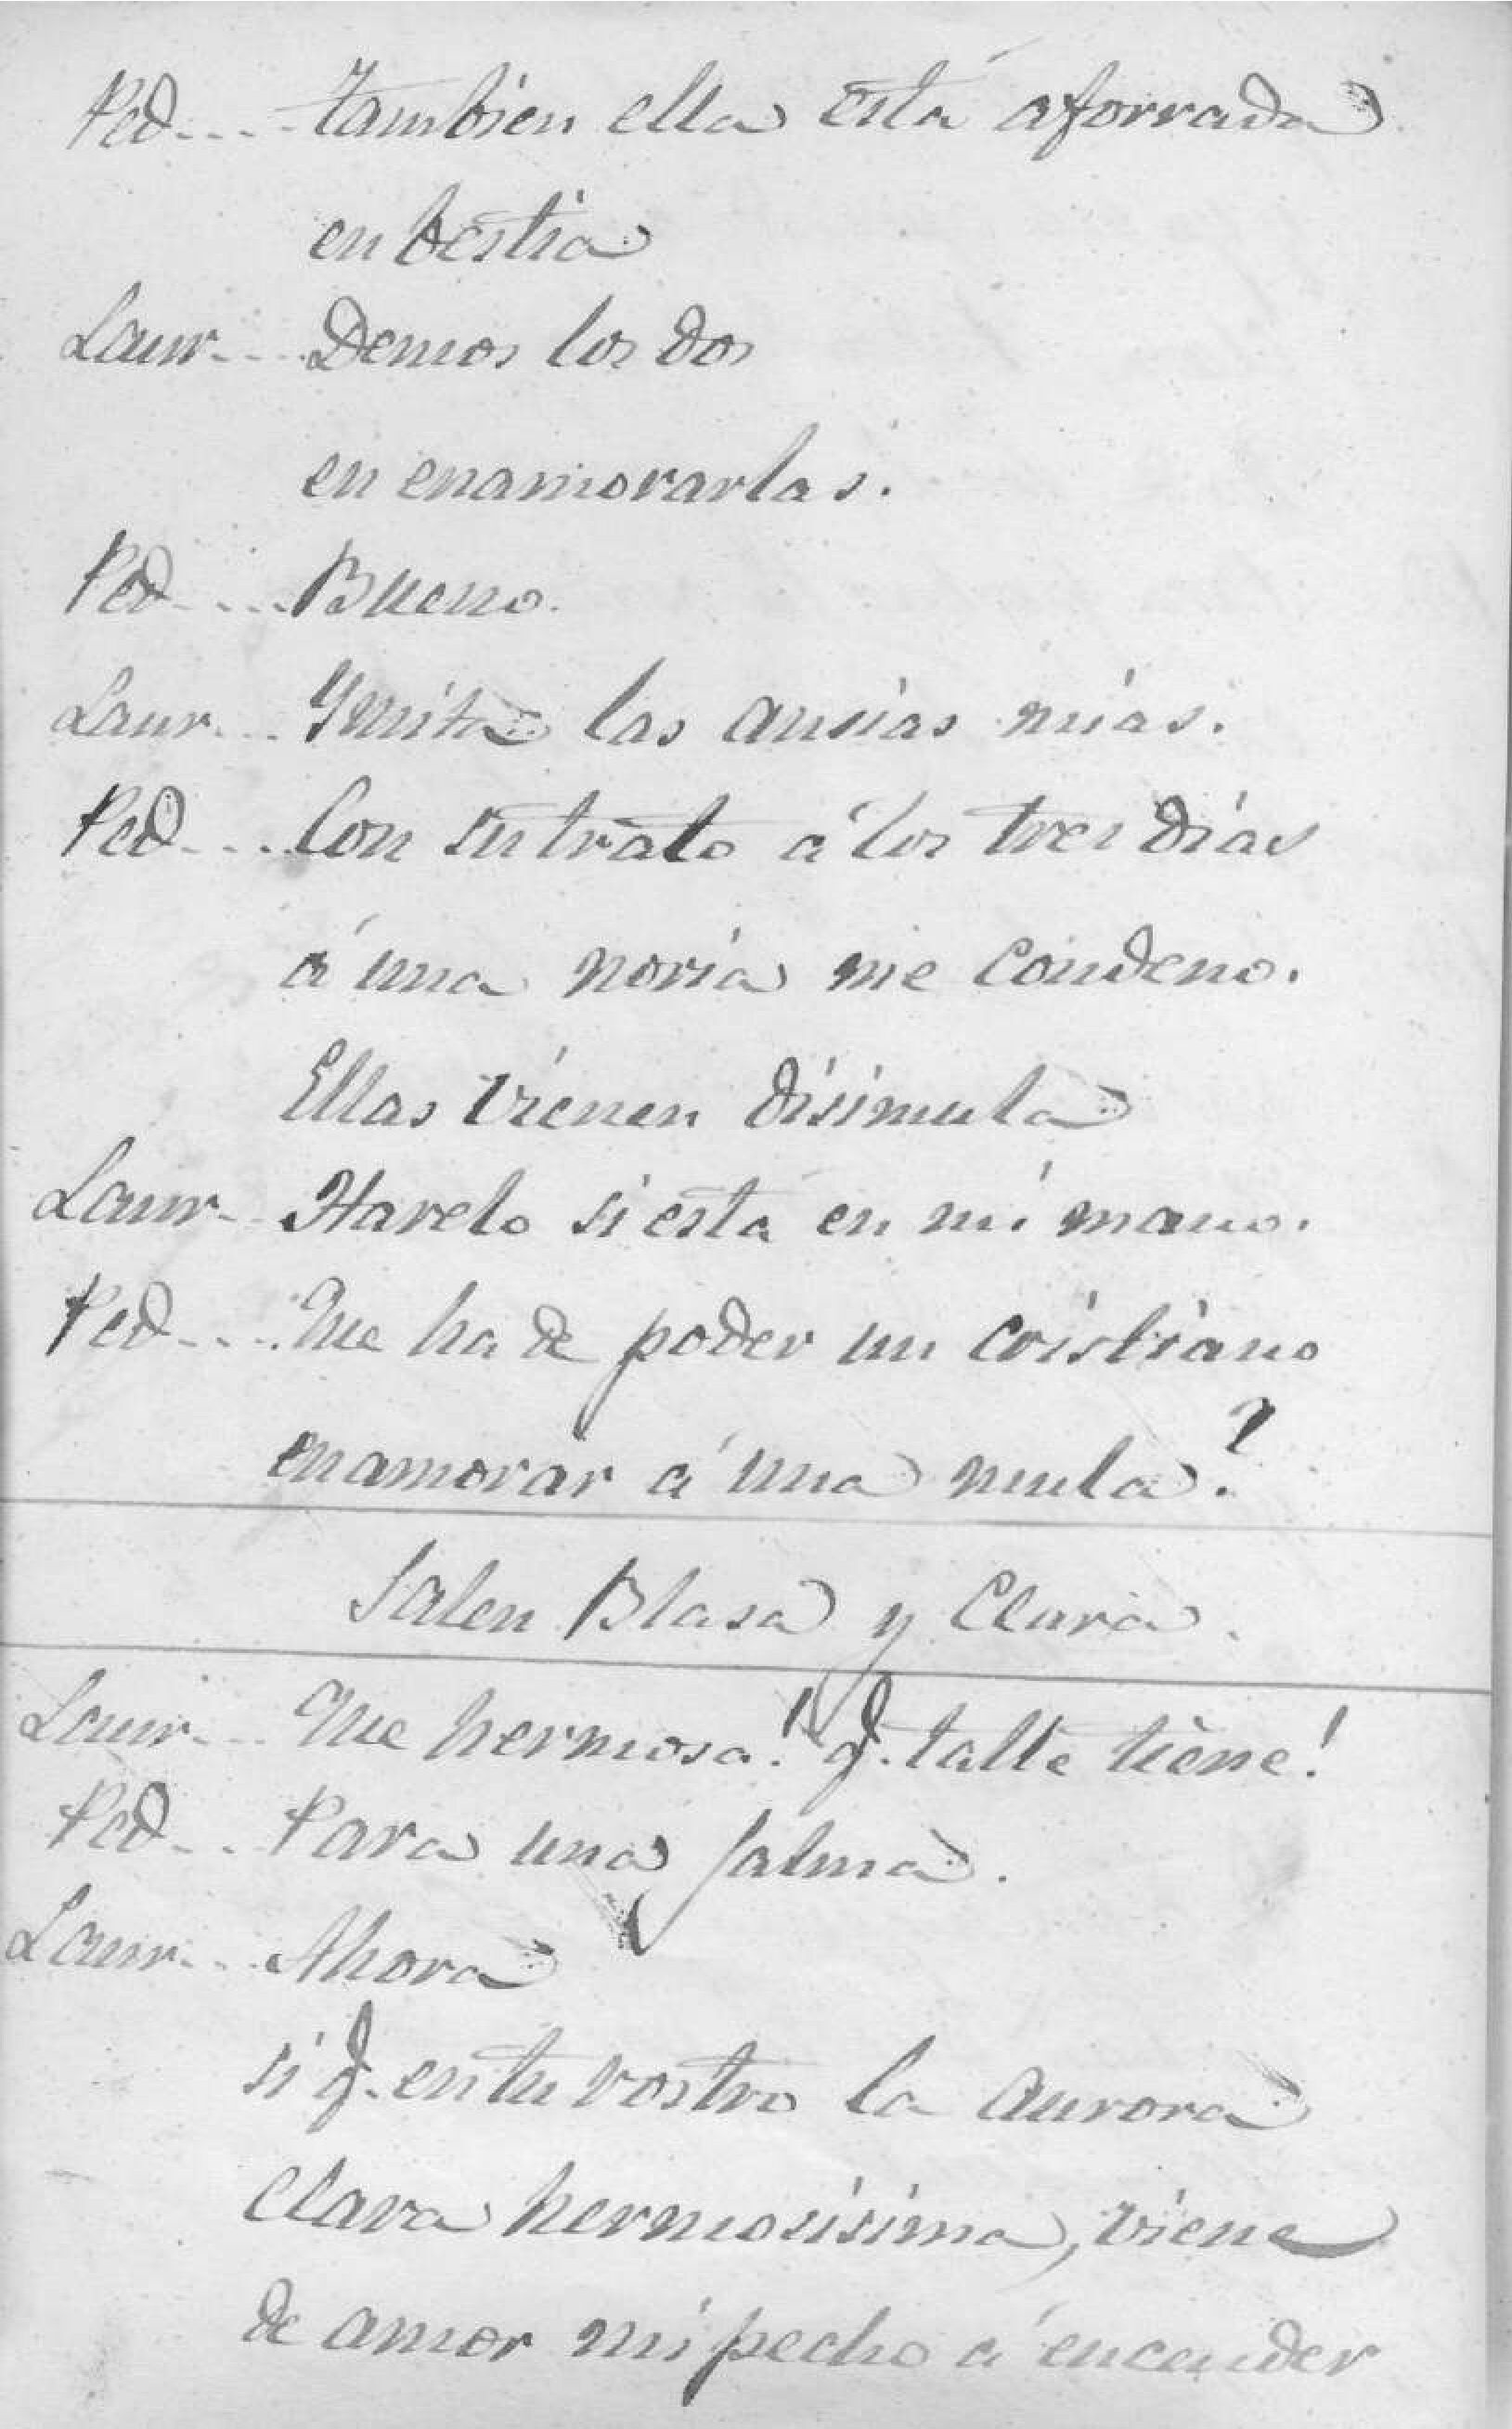 Ped.... tambien ella está aforrada
en bestia
Laur.... Demos los dos
en enamorarlas.
Ped.... Bueno.
Laur... Ymita las ansias mias.
Ped.... Con su trato á los tres dias
á una noria me condeno.
Ellas vienen disimula
Laur.. Harelo si está en mi mano.
Ped.... Que ha de poder un cristiano
enamorar á una mula?
Salen Blasa y Clara.
Laur... Que hermosa! q. talle tiene!
Ped... Para una salma.
Laur... Ahora
si q. en tu rostro la aurora
Clara hermosisima, viene
de amor mi pecho á encender